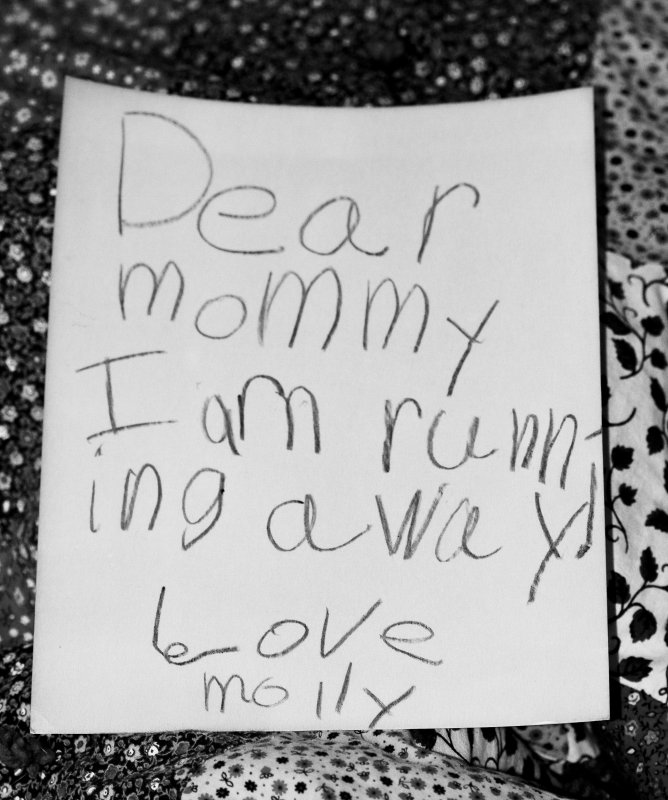 Dear
mommy
I am runn-
ing away!
Love
molly